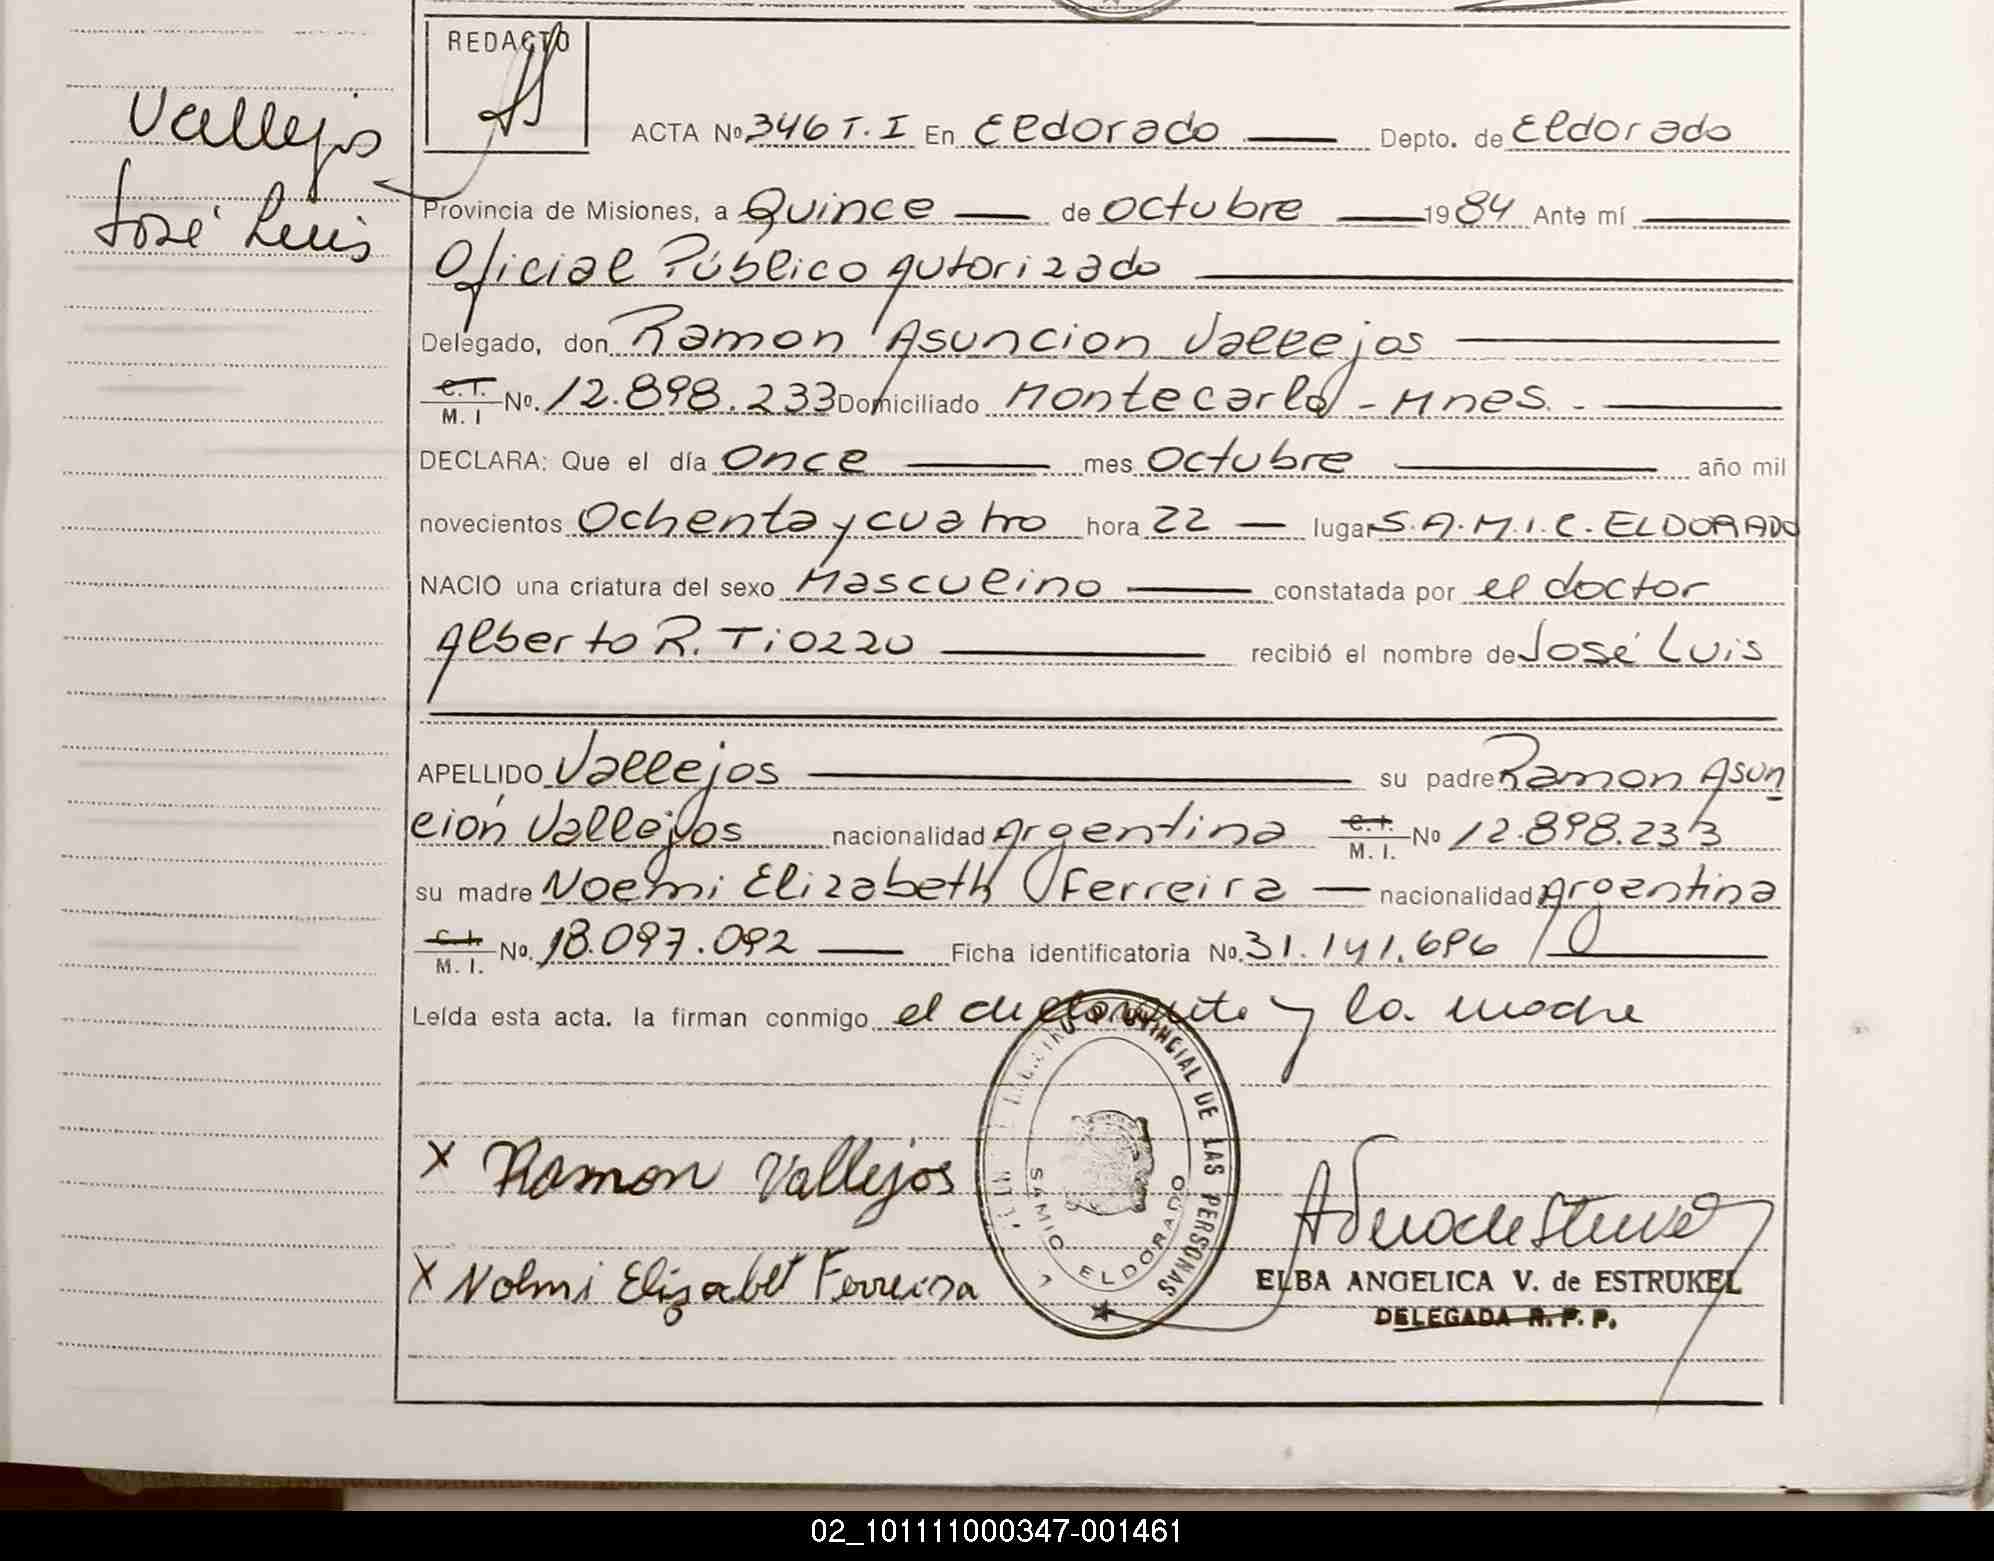 REDACTO
Vallejo
José Luis
ACTA Nº 346 T. I En Eldorado Depto. de Eldorado
Provincia de Misiones, a Quince de octubre 1984 Ante mí
Oficial Público Autorizado
Delegado, don Ramon Asuncion Vallejos
C.I. M. I Nº. 12.898.233 Domiciliado Montecarlo - Mnes. -
DECLARA: Que el día Once mes Octubre año mil
novecientos Ochenta y cuatro hora 22 lugar S.A.M.I.C. ELDORADO
NACIO una criatura del sexo Masculino constatada por el doctor
Alberto R. Tiozzo recibió el nombre de José Luis
APELLIDO Vallejos su padre Ramon Asun
ción Vallejos nacionalidad Argentina C.I. M. I. Nº 12.898.233
su madre Noemi Elizabeth Ferreira nacionalidad Argentina
C.I. M. I. Nº. 18.097.092 Ficha identificatoria Nº. 31.141.696
Leída esta acta. la firman conmigo el declarante y la madre
REGISTRO PROVINCIAL DE LAS PERSONAS
SAMIC ELDORADO
X Ramon Vallejos
X Nolmi Elizabet Ferreira
ELBA ANGELICA V. de ESTRUKEL
DELEGADA R. P. P.
02_101111000347-001461